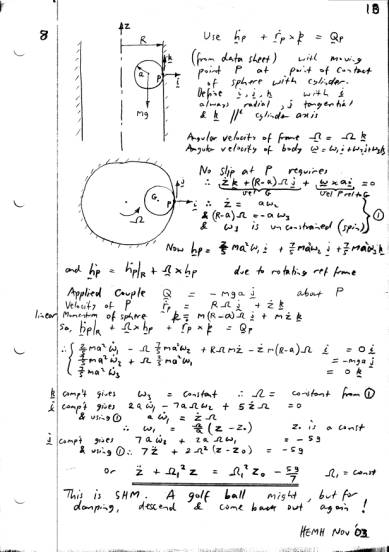 13
8
z
R
k
a
P
i
Mg
Use hp + ṙp × p = Qp
(from data sheet) with moving
point P at point of contact
of sphere with cylinder.
Define i, j, k with i
always radial, j tangential
& k //el cylinder axis
Angular velocity of frame Ω = Ω k
Angular velocity of body ω = ω₁i + ω₂j + ω₃k
j
G
P
i
Ω
No slip at P requires
∴ ż k + (R-a) Ω j + ω × a i = 0
vel G vel P rel to G
∴ ż = aω₂
& (R-a) Ω = -a ω₃
& is unconstrained (spin)
①
Now hp = ma² ω₁ i + 7/5 ma² ω₂ j + 7/5 ma² ω₃ k
and ḣp = ḣp|R + Ω × hp due to rotating ref frame
Applied Couple Q = - mga j about P
Velocity of P ṙp = R Ω j + ż k
linear Momentum of sphere p = m(R-a) Ω j + m ż k
So, ḣp|R + Ω × hp + ṙp × p = Qp
∴ ma² ω̇₁ - Ω 7/5 ma² ω₂ + RΩ m ż - ż m(R-a) Ω i = 0 i
7/5 ma² ω̇₂ + Ω ma² ω₁ = -mga j
7/5 ma² ω̇₃ = 0 k
k comp't gives ω₃ = constant ∴ Ω = constant from ①
i comp't gives 2a ω̇₁ - 7a Ω ω₂ + 5 ż Ω = 0
& using ① a ω̇₁ = ż Ω
∴ ω₁ = (z - z₀) z₀ is a const
j comp't gives 7a ω̇₂ + 2a Ω ω₁ = -5g
& using ①: 7 z̈ + 2Ω² (z - z₀) = -5g
or z̈ + Ω₁² z = Ω₁² z₀ - 5g/7 Ω₁ = const
This is SHM. A golf ball might, but for
damping, descend & come back out again!
HEMH Nov '03